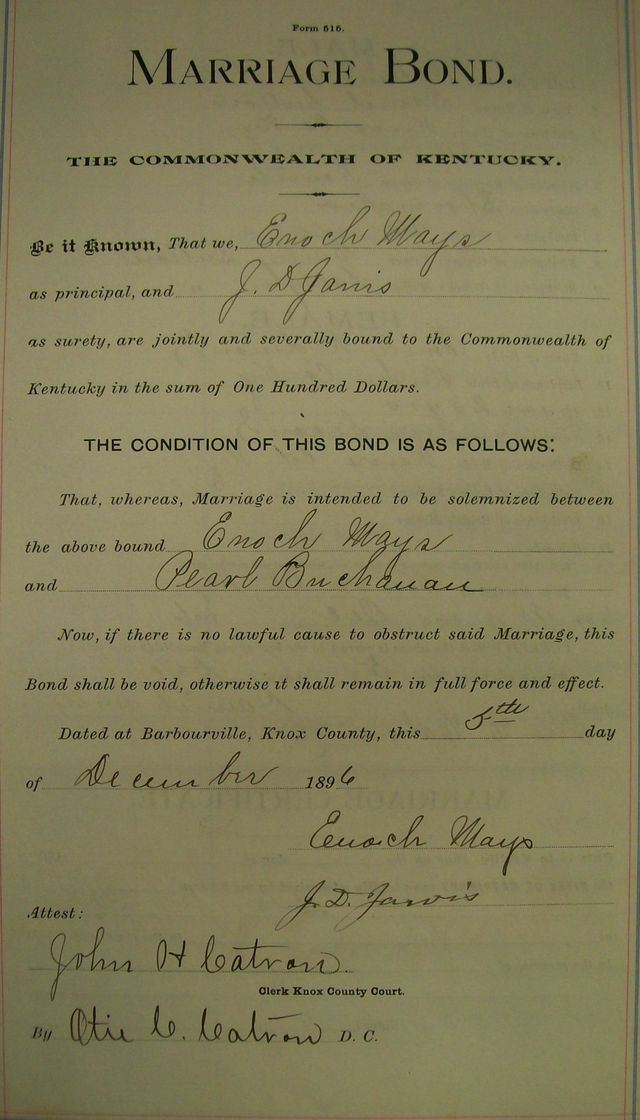 Form 515.
MARRIAGE BOND.
THE COMMONWEALTH OF KENTUCKY.
Be it Known, That we, Enoch Mays
as principal, and J. D. Jarvis
as surety, are jointly and severally bound to the Commonwealth of
Kentucky in the sum of One Hundred Dollars.
THE CONDITION OF THIS BOND IS AS FOLLOWS:
That, whereas, Marriage is intended to be solemnized between
the above bound Enoch Mays
and Pearl Buchanan
Now, if there is no lawful cause to obstruct said Marriage, this
Bond shall be void, otherwise it shall remain in full force and effect.
Dated at Barbourville, Knox County, this 5th day
of December 1896
Enoch Mays
J. D. Jarvis
Attest:
John H Catron.
Clerk Knox County Court.
By Otie C. Catron D. C.